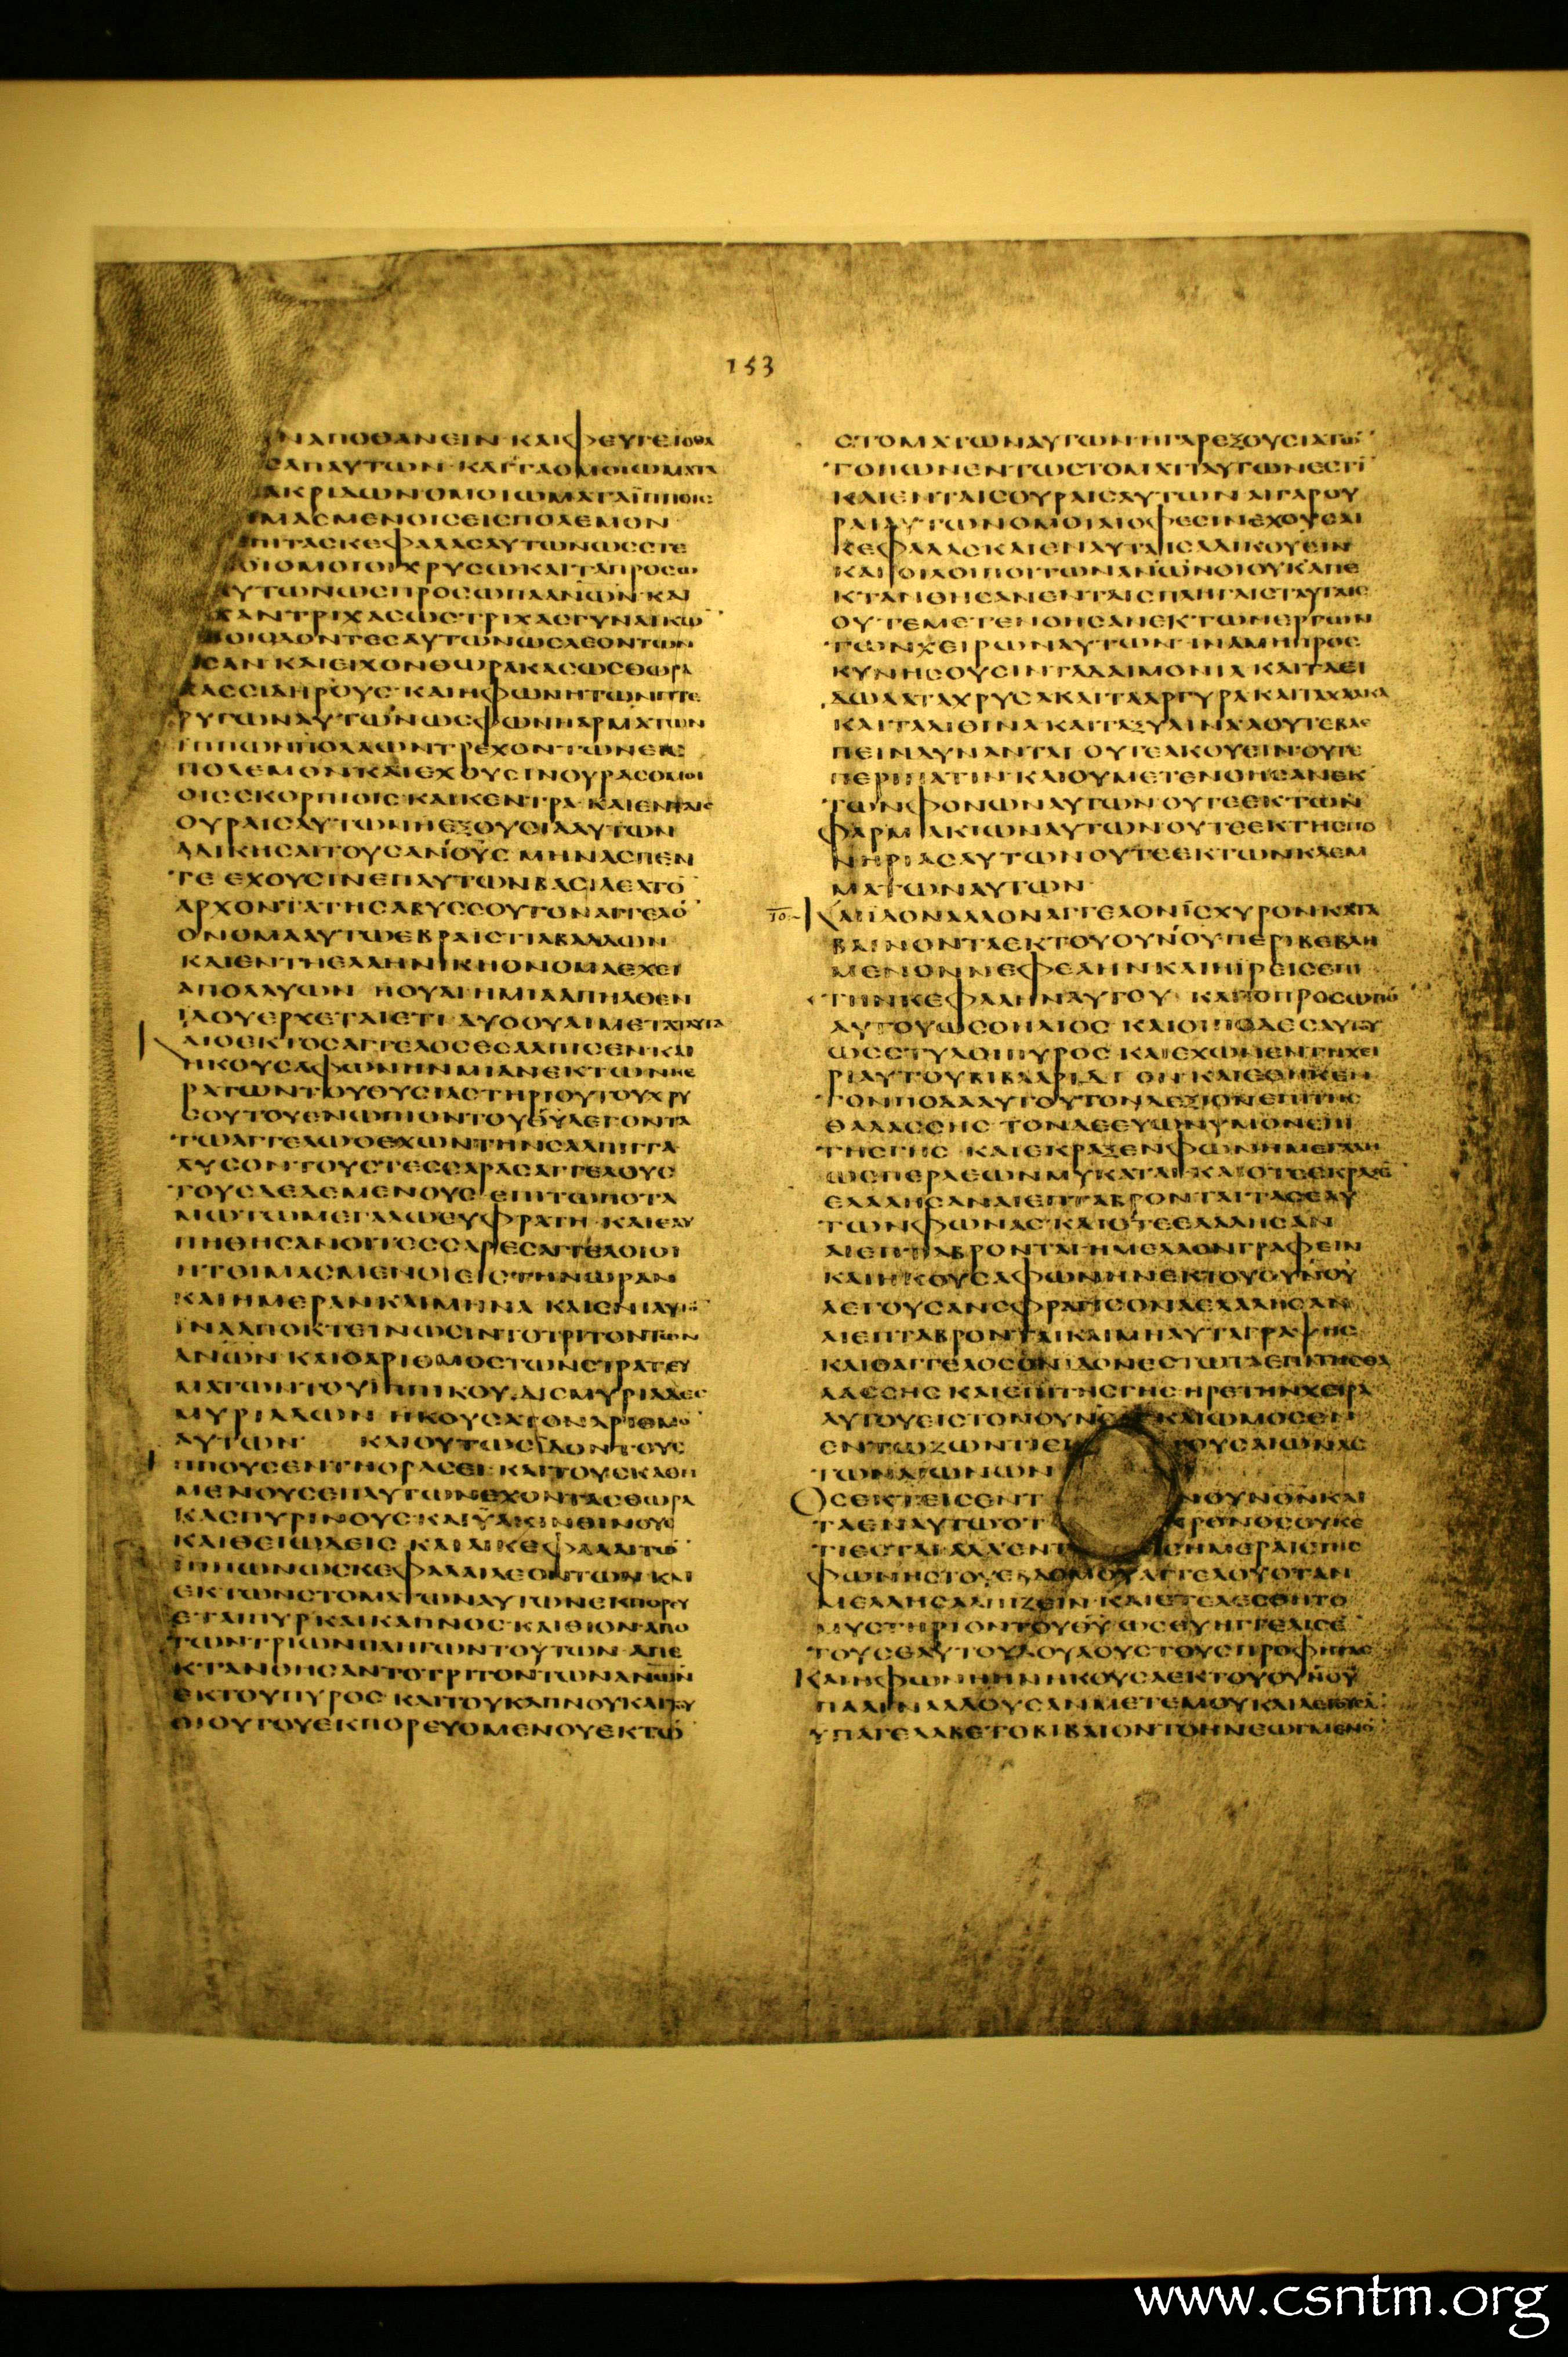 153
ΝΑΠΟΘΑΝΕΙΝ ΚΑΙΦΕΥΓΕΙΟΘΑ
ϹΑΠΑΥΤΩΝ ΚΑΙΤΑΟΜΟΙΩΜΑΤΑ
ΑΚΡΙΔΩΝΟΜΟΙΩΜΑΤΑΪΠΠΟΙϹ
ΜΑϹΜΕΝΟΙϹΕΙϹΠΟΛΕΜΟΝ
ΠΙΤΑϹΚΕΦΑΛΑϹΑΥΤΩΝΩϹϹΤΕ
ΟΙΟΜΟΙΟΙΧΡΥϹΩΚΑΙΤΑΠΡΟϹΩ
ΥΤΩΝΩϹΠΡΟϹΩΠΑΑΝΩΝ ΚΑΙ
ΧΑΝΤΡΙΧΑϹΩϹΤΡΙΧΑϹΓΥΝΑΙΚΩ
ΟΙΟΔΟΝΤΕϹΑΥΤΩΝΩϹΛΕΟΝΤΩΝ
ϹΑΝ ΚΑΙΕΙΧΟΝΘΩΡΑΚΑϹΩϹΘΩΡΑ
ΚΑϹϹΙΔΗΡΟΥϹ ΚΑΙΗΦΩΝΗΤΩΝΠΤΕ
ΡΥΓΩΝΑΥΤΩΝΩϹΦΩΝΗΑΡΜΑΤΩΝ
ΙΠΠΩΝΠΟΛΛΩΝΤΡΕΧΟΝΤΩΝΕΙϹ
ΠΟΛΕΜΟΝΚΑΙΕΧΟΥϹΙΝΟΥΡΑϹΟΜΟΙ
ΟΙϹϹΚΟΡΠΙΟΙϹ ΚΑΙΚΕΝΤΡΑ ΚΑΙΕΝΤΑΙϹ
ΟΥΡΑΙϹΑΥΤΩΝΗΕΞΟΥϹΙΑΑΥΤΩΝ
ΑΔΙΚΗϹΑΙΤΟΥϹΑΝΟΥϹ ΜΗΝΑϹΠΕΝ
ΤΕ ΕΧΟΥϹΙΝΕΠΑΥΤΩΝΒΑϹΙΛΕΑΤΟ
ΑΡΧΟΝΤΑΤΗϹΑΒΥϹϹΟΥΤΟΝΑΓΓΕΛΟ
ΟΝΟΜΑΑΥΤΩΕΒΡΑΙϹΤΙΑΒΑΔΔΩΝ
ΚΑΙΕΝΤΗΕΛΛΗΝΙΚΗΟΝΟΜΑΕΧΕΙ
ΑΠΟΛΛΥΩΝ ΗΟΥΑΙΗΜΙΑΑΠΗΛΘΕΝ
ΙΔΟΥΕΡΧΕΤΑΙΕΤΙ ΔΥΟΟΥΑΙΜΕΤΑΤΑΥΤΑ
ΑΙΟΕΚΤΟϹΑΓΓΕΛΟϹΕϹΑΛΠΙϹΕΝ ΚΑΙ
ΗΚΟΥϹΑΦΩΝΗΝΜΙΑΝΕΚΤΩΝΚΕ
ΡΑΤΩΝΤΟΥΘΥϹΙΑϹΤΗΡΙΟΥΤΟΥΧΡΥ
ϹΟΥΤΟΥΕΝΩΠΙΟΝΤΟΥΘΥΛΕΓΟΝΤΑ
ΤΩΑΓΓΕΛΩΟΕΧΩΝΤΗΝϹΑΛΠΙΓΓΑ
ΛΥϹΟΝΤΟΥϹΤΕϹϹΑΡΑϹΑΓΓΕΛΟΥϹ
ΤΟΥϹΔΕΔΕΜΕΝΟΥϹ ΕΠΙΤΩΠΟΤΑ
ΜΩΤΩΜΕΓΑΛΩΕΥΦΡΑΤΗ ΚΑΙΕΛΥ
ΠΗΘΗϹΑΝΟΙΤΕϹϹΑΡΕϹΑΓΓΕΛΟΙΟΙ
ΗΤΟΙΜΑϹΜΕΝΟΙΕΙϹΤΗΝΩΡΑΝ
ΚΑΙΗΜΕΡΑΝΚΑΙΜΗΝΑ ΚΑΙΕΝΙΑΥΤΟ
ΙΝΑΑΠΟΚΤΕΙΝΩϹΙΝΤΟΤΡΙΤΟΝΤΩΝ
ΑΝΩΝ ΚΑΙΟΑΡΙΘΜΟϹΤΩΝϹΤΡΑΤΕΥ
ΜΑΤΩΝΤΟΥΙΠΠΙΚΟΥ ΔΙϹΜΥΡΙΑΔΕϹ
ΜΥΡΙΑΔΩΝ ΗΚΟΥϹΑΤΟΝΑΡΙΘΜΟ
ΑΥΤΩΝ ΚΑΙΟΥΤΩϹΪΔΟΝΤΟΥϹ
ΙΠΠΟΥϹΕΝΤΗΟΡΑϹΕΙ ΚΑΙΤΟΥϹΚΑΘΗ
ΜΕΝΟΥϹΕΠΑΥΤΩΝΕΧΟΝΤΑϹΘΩΡΑ
ΚΑϹΠΥΡΙΝΟΥϹ ΚΑΙΫΑΚΙΝΘΙΝΟΥϹ
ΚΑΙΘΕΙΩΔΕΙϹ ΚΑΙΑΙΚΕΦΑΛΑΙΤΩ
ΙΠΠΩΝΩϹΚΕΦΑΛΑΙΛΕΟΝΤΩΝ ΚΑΙ
ΕΚΤΩΝϹΤΟΜΑΤΩΝΑΥΤΩΝΕΚΠΟΡΕΥ
ΕΤΑΙΠΥΡ ΚΑΙΚΑΠΝΟϹ ΚΑΙΘΙΟΝ ΑΠΟ
ΤΩΝΤΡΙΩΝΠΛΗΓΩΝΤΟΥΤΩΝ ΑΠΕ
ΚΤΑΝΘΗϹΑΝΤΟΤΡΙΤΟΝΤΩΝΑΝΩΝ
ΕΚΤΟΥΠΥΡΟϹ ΚΑΙΤΟΥΚΑΠΝΟΥΚΑΙΤΟΥ
ΘΙΟΥΤΟΥΕΚΠΟΡΕΥΟΜΕΝΟΥΕΚΤΩ
ϹΤΟΜΑΤΩΝΑΥΤΩΝΗΓΑΡΕΞΟΥϹΙΑΤΩ
ΤΟΠΩΝΕΝΤΩϹΤΟΜΑΤΙΑΥΤΩΝΕϹΤΙ
ΚΑΙΕΝΤΑΙϹΟΥΡΑΙϹΑΥΤΩΝ ΑΙΓΑΡΟΥ
ΡΑΙΑΥΤΩΝΟΜΟΙΑΙΟΦΕϹΙΝΕΧΟΥϹΑΙ
ΚΕΦΑΛΑϹ ΚΑΙΕΝΑΥΤΑΙϹΑΔΙΚΟΥϹΙΝ
ΚΑΙΟΙΛΟΙΠΟΙΤΩΝΑΝΩΝΟΙΟΥΚΑΠΕ
ΚΤΑΝΘΗϹΑΝΕΝΤΑΙϹΠΛΗΓΑΙϹΤΑΥΤΑΙϹ
ΟΥΤΕΜΕΤΕΝΟΗϹΑΝΕΚΤΩΝΕΡΓΩΝ
ΤΩΝΧΕΙΡΩΝΑΥΤΩΝ ΙΝΑΜΗΠΡΟϹ
ΚΥΝΗϹΟΥϹΙΝΤΑΔΑΙΜΟΝΙΑ ΚΑΙΤΑΕΙ
ΔΩΛΑΤΑΧΡΥϹΑΚΑΙΤΑΑΡΓΥΡΑ ΚΑΙΤΑΧΑΛΚΑ
ΚΑΙΤΑΛΙΘΙΝΑ ΚΑΙΤΑΞΥΛΙΝΑΑΟΥΤΕΒΛΕ
ΠΕΙΝΔΥΝΑΝΤΑΙ ΟΥΤΕΑΚΟΥΕΙΝΟΥΤΕ
ΠΕΡΙΠΑΤΙΝ ΚΑΙΟΥΜΕΤΕΝΟΗϹΑΝΕΚ
ΤΩΝΦΟΝΩΝΑΥΤΩΝ ΟΥΤΕΕΚΤΩΝ
ΦΑΡΜΑΚΙΩΝΑΥΤΩΝ ΟΥΤΕΕΚΤΗϹΠΟ
ΝΗΡΙΑϹΑΥΤΩΝΟΥΤΕΕΚΤΩΝΚΛΕΜ
ΜΑΤΩΝΑΥΤΩΝ
ΚΑΙΙΔΟΝΑΛΛΟΝΑΓΓΕΛΟΝΪϹΧΥΡΟΝΚΑΤΑ
ΒΑΙΝΟΝΤΑΕΚΤΟΥΟΥΝΟΥΠΕΡΙΒΕΒΛΗ
ΜΕΝΟΝΝΕΦΕΛΗΝ ΚΑΙΗΙΡΕΙϹΕΠΙ
ΤΗΝΚΕΦΑΛΗΝΑΥΤΟΥ ΚΑΙΤΟΠΡΟϹΩΠΟ
ΑΥΤΟΥΩϹΟΗΛΙΟϹ ΚΑΙΟΙΠΟΔΕϹΑΥΤΟΥ
ΩϹϹΤΥΛΟΙΠΥΡΟϹ ΚΑΙΕΧΩΝΕΝΤΗΧΕΙ
ΡΙΑΥΤΟΥΒΙΒΛΑΡΙΔΙΟΝ ΚΑΙΕΘΗΚΕΝ
ΤΟΝΠΟΔΑΑΥΤΟΥΤΟΝΔΕΞΙΟΝΕΠΙΤΗϹ
ΘΑΛΑϹϹΗϹ ΤΟΝΔΕΕΥΩΝΥΜΟΝΕΠΙ
ΤΗϹΓΗϹ ΚΑΙΕΚΡΑΞΕΝΦΩΝΗΜΕΓΑΛΗ
ΩϹΠΕΡΛΕΩΝΜΥΚΑΤΑΙ ΚΑΙΟΤΕΕΚΡΑΞΕ
ΕΛΑΛΗϹΑΝΑΙΕΠΤΑΒΡΟΝΤΑΙΤΑϹΕΑΥ
ΤΩΝΦΩΝΑϹ ΚΑΙΟΤΕΕΛΑΛΗϹΑΝ
ΑΙΕΠΤΑΒΡΟΝΤΑΙΗΜΕΛΛΟΝΓΡΑΦΕΙΝ
ΚΑΙΗΚΟΥϹΑΦΩΝΗΝΕΚΤΟΥΟΥΝΟΥ
ΛΕΓΟΥϹΑΝϹΦΡΑΓΙϹΟΝΑΕΛΑΛΗϹΑΝ
ΑΙΕΠΤΑΒΡΟΝΤΑΙΚΑΙΜΗΑΥΤΑΓΡΑΨΗϹ
ΚΑΙΟΑΓΓΕΛΟϹΟΝΙΔΟΝΕϹΤΩΤΑΕΠΙΤΗϹΘΑ
ΛΑϹϹΗϹ ΚΑΙΕΠΙΤΗϹΓΗϹ ΗΡΕΤΗΝΧΕΙΡΑ
ΑΥΤΟΥΕΙϹΤΟΝΟΥΝΟ ΚΑΙΩΜΟϹΕΝ
ΕΝΤΩΖΩΝΤΙΕΙ ΤΟΥϹΑΙΩΝΑϹ
ΤΩΝΑΙΩΝΩΝ
ΟϹΕΚΤΕΙϹΕΝΤ ΝΟΥΝΟΝΚΑΙ
ΤΑΕΝΑΥΤΩΟΤ ΧΡΟΝΟϹΟΥΚΕ
ΤΙΕϹΤΑΙ ΑΛΛΕΝΤ ϹΗΜΕΡΑΙϹΤΗϹ
ΦΩΝΗϹΤΟΥΕΒΔΟΜΟΥΑΓΓΕΛΟΥΟΤΑΝ
ΜΕΛΛΗϹΑΛΠΙΖΕΙΝ ΚΑΙΕΤΕΛΕϹΘΗΤΟ
ΜΥϹΤΗΡΙΟΝΤΟΥΘΥ ΩϹΕΥΗΓΓΕΛΙϹΕ
ΤΟΥϹΕΑΥΤΟΥΔΟΥΛΟΥϹΤΟΥϹΠΡΟΦΗΤΑϹ
ΚΑΙΗΦΩΝΗΗΝΗΚΟΥϹΑΕΚΤΟΥΟΥΝΟΥ
ΠΑΛΙΝΛΑΛΟΥϹΑΝΜΕΤΕΜΟΥΚΑΙΛΕΓΟΥϹΑ
ΥΠΑΓΕΛΑΒΕΤΟΒΙΒΛΙΟΝΤΟΗΝΕΩΓΜΕΝΟ
www.csntm.org